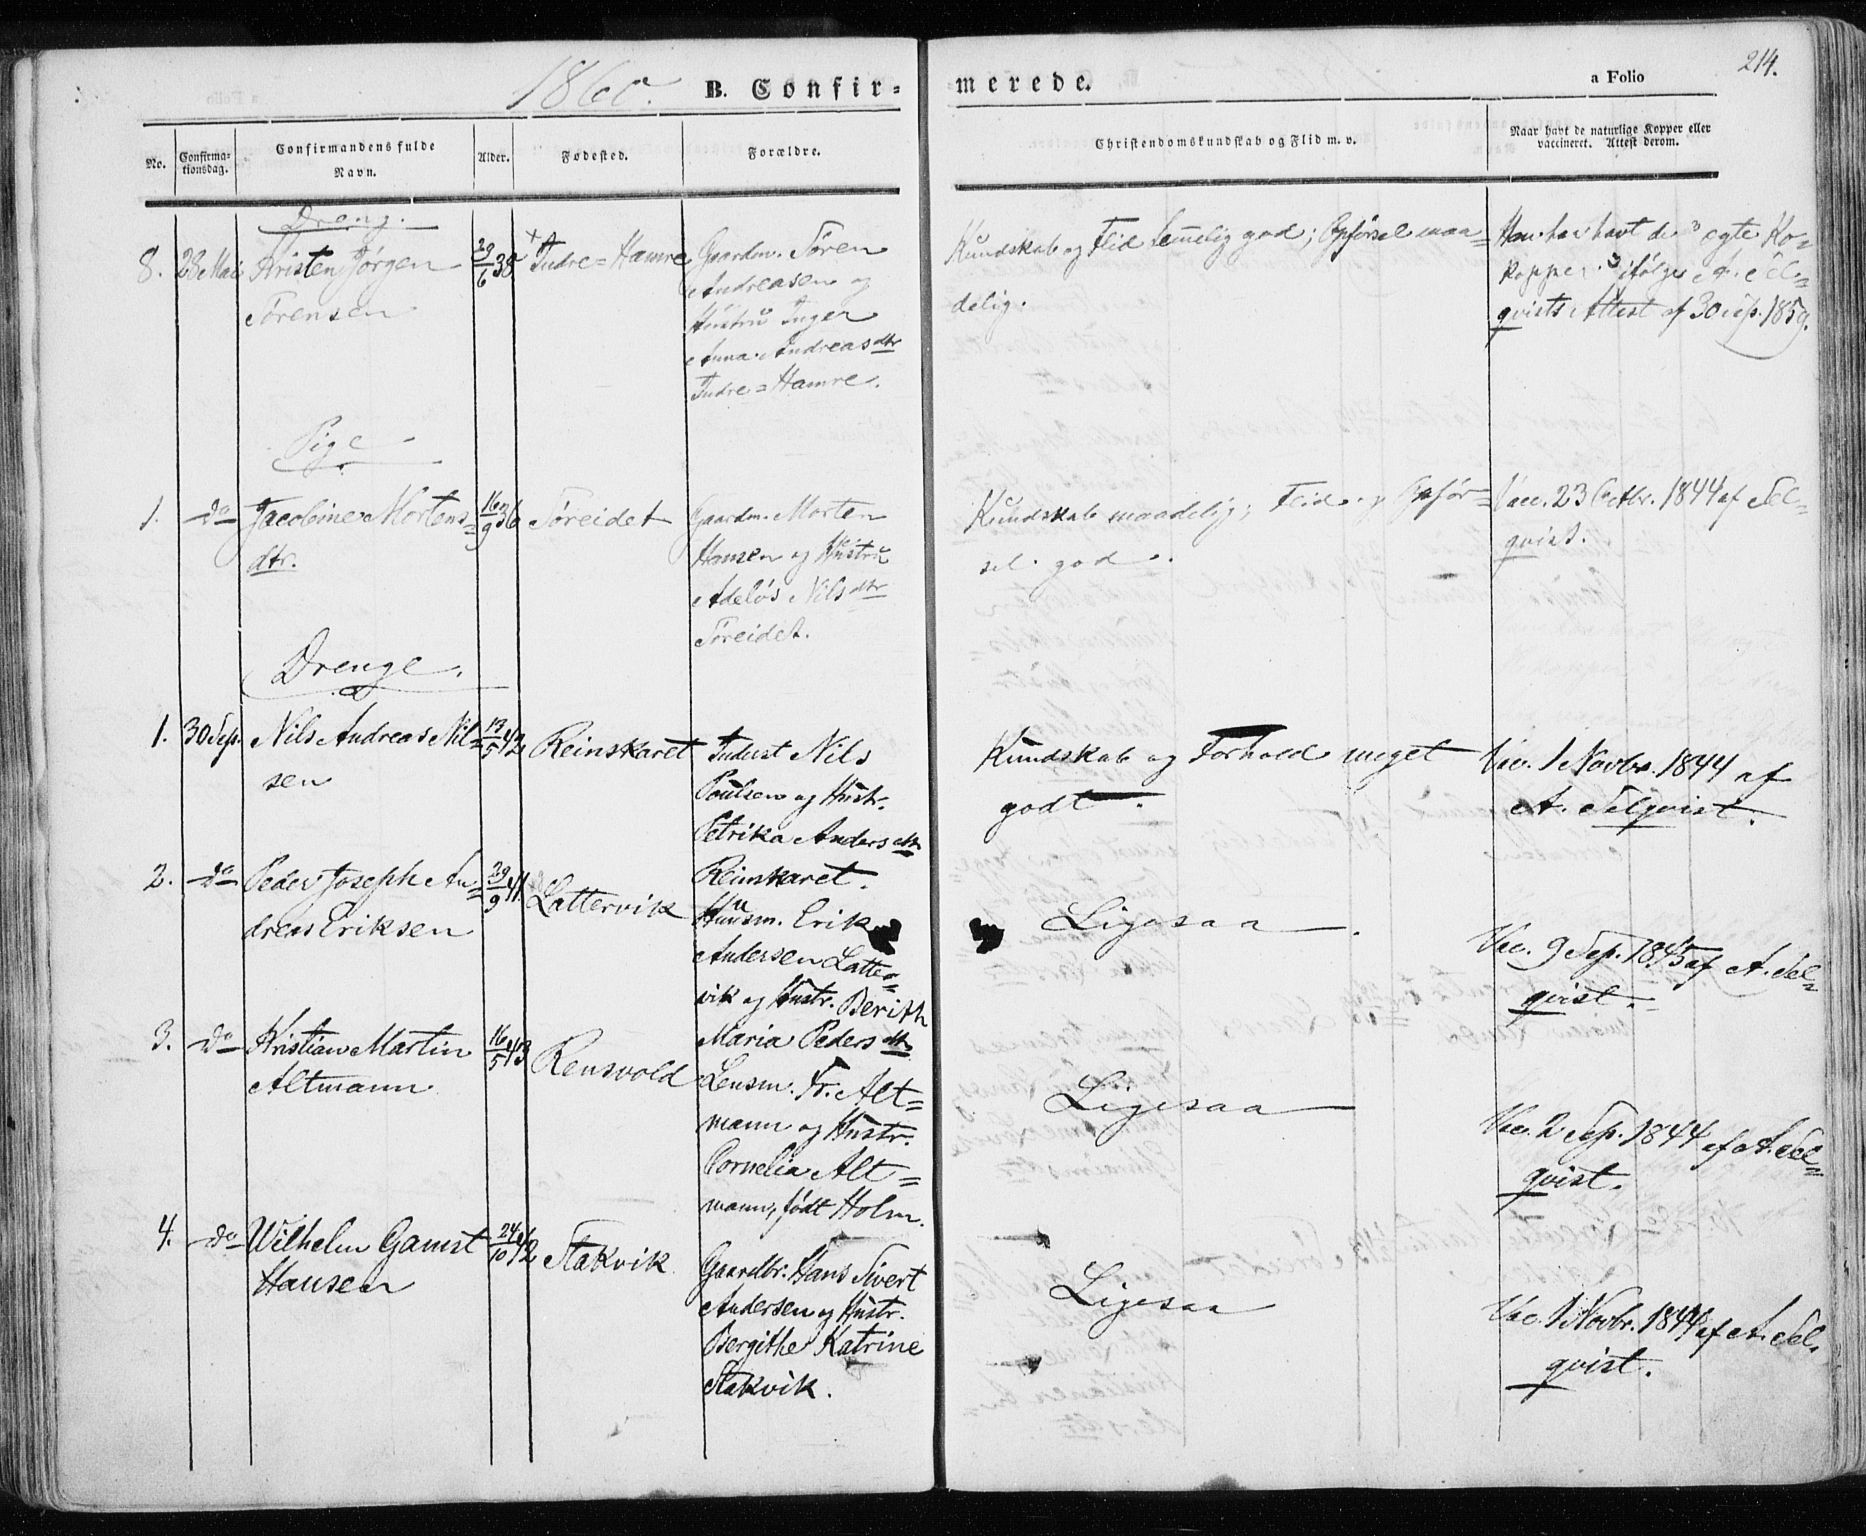 1860. B. Confir=
merede.
a Folio
214.
No.
Confirma-
tionsdag.
Confirmandens fulde
Navn.
Alder.
Fødested.
Forældre.
Christendomskundskab og Flid m. v.
Naar havt de naturlige Kopper eller
vaccineret. Attest derom.
Dreng.
8. 28 Mai Kristen Jørgen 29/6 38 Indre=Hamre
Sørensen
Gaardm. Søren
Andreasen og
Hustru Inger
Anna Andreasdtr
Indre=Hamre.
Kundskab og Flid temelig god; Opførsel maa=
delig.
Han har havt de egte Ko=
kopper ifølge A. Sel=
qvists Attest af 30 Sep. 1859.
Pige
1. do Jacobine Mortens= 16/9 36 Søreidet
dtr.
Gaardm. Morten
Hansen og Hustru
Adeløs Nilsdtr
Søreidet.
Kundskab maadelig; Flid og Opfør=
sel god.
Vacc. 23 Octbr. 1844 af Sel=
qvist.
Drenge.
1. 30 Sep. Nils Andreas Nil= 13/5 42 Reinskaret
sen
Inderst Nils
Poulsen og Hustr.
Petrika Andersdtr
Reinskaret.
Kundskab og Forhold meget
godt.
Vac. 1 Novbr. 1844 af
A. Selqvist.
2. do Peder Joseph An= 29/9 41. Lattervik
dreas Eriksen
Huusm. Erik
Andersen Latter=
vik og Hustr. Berith
Maria Pedersdtr
Ligesaa
Vac. 9 Sep. 1845 af A. Sel=
qvist.
3. do Kristian Martin 16/5 43 Rensvold
Altmann
Lensm. Fr. Alt=
mann og Hustr.
Cornelia Alt=
mann, født Holm.
Ligesaa
Vac. 2 Sep. 1844 af A. Sel=
qvist.
4. do Wilhelm Gamst 24/10 42 Stakvik
Hansen
Gaardbr. Hans Sivert
Andersen og Hustr.
Bergithe Katrine
Stakvik.
Ligesaa
Vac. 1 Novbr. 1844 af A. Sel.
qvist.